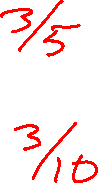 3/5
3/10